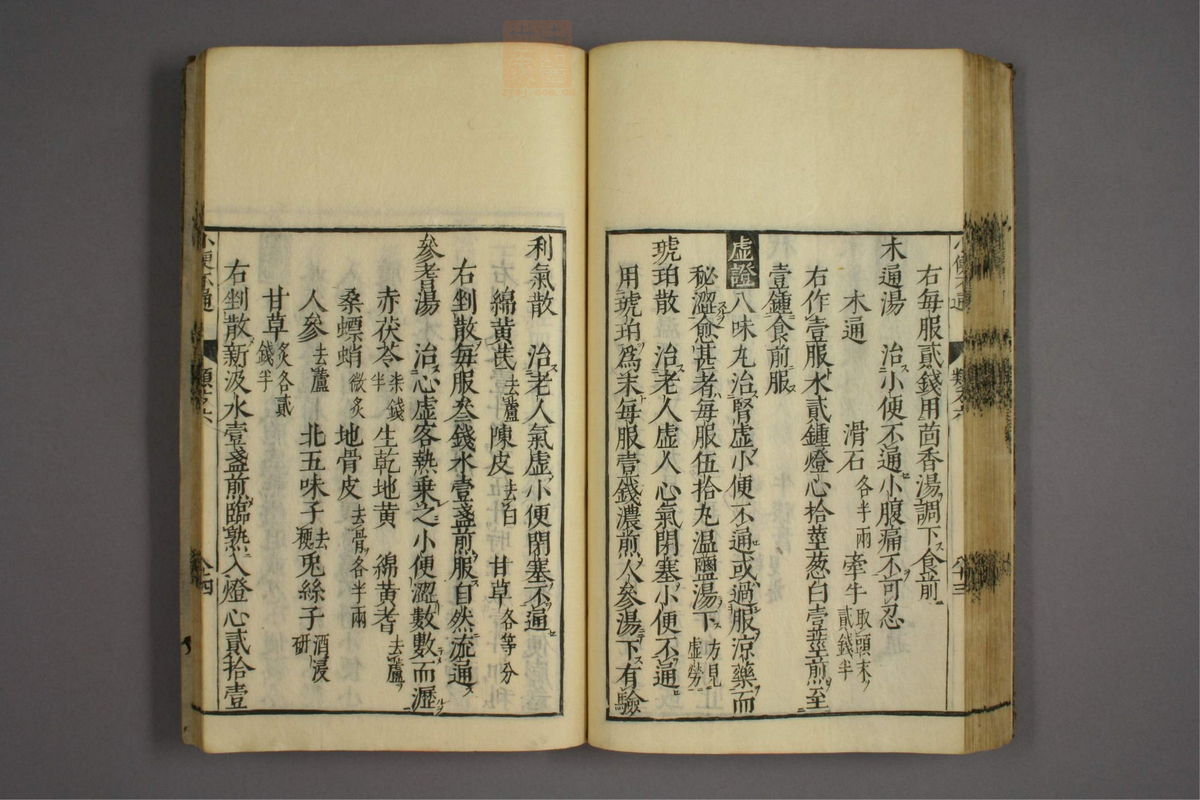 右每服貳錢用茴香湯調下食前
木通湯 治小便不通小腹痛不可忍
木通 滑石各半兩 牽牛取頭末貳錢半
右作壹服水貳鍾燈心拾莖葱白壹莖煎至
壹鍾食前服
虛證 八味丸治腎虛小便不通或過服涼藥而
秘澀愈甚者每服伍拾丸溫鹽湯下方見虛勞
琥珀散 治老人虛人心氣閉塞小便不通
用琥珀爲末每服壹錢濃煎人參湯下有驗
利氣散 治老人氣虛小便閉塞不通
綿黃芪去蘆 陳皮去白 甘草各等分
右剉散每服叁錢水壹盞煎服自然流通
參耆湯 治心虛客熱乗之小便澀數數而瀝
赤茯苓柒錢半 生乾地黃 綿黃耆去蘆
桑螵蛸微炙 地骨皮去骨各半兩
人參去蘆 北五味子去梗 兎絲子酒浸研
甘草炙各貳錢半
右剉散新汲水壹盞煎臨熟入燈心貳拾壹
小便不通
八十四